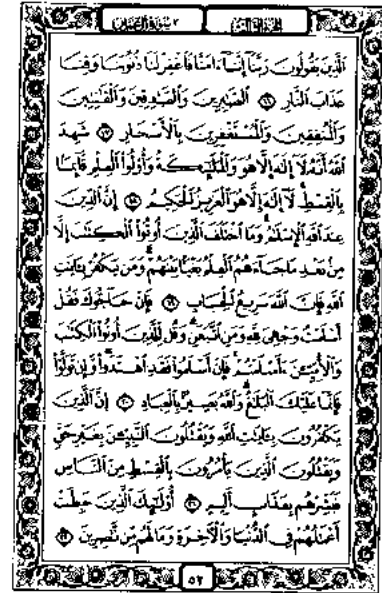 الجزء الثالث
٣ سورة آل عمران
الَّذِينَ يَقُولُونَ رَبَّنَا إِنَّنَا ءَامَنَّا فَاغْفِرْ لَنَا ذُنُوبَنَا وَقِنَا
عَذَابَ النَّارِ ١٦ الصَّٰبِرِينَ وَالصَّٰدِقِينَ وَالْقَٰنِتِينَ
وَالْمُنفِقِينَ وَالْمُسْتَغْفِرِينَ بِالْأَسْحَارِ ١٧ شَهِدَ
اللَّهُ أَنَّهُ لَا إِلَٰهَ إِلَّا هُوَ وَالْمَلَٰئِكَةُ وَأُولُوا الْعِلْمِ قَائِمًا
بِالْقِسْطِ لَا إِلَٰهَ إِلَّا هُوَ الْعَزِيزُ الْحَكِيمُ ١٨ إِنَّ الدِّينَ
عِندَ اللَّهِ الْإِسْلَٰمُ وَمَا اخْتَلَفَ الَّذِينَ أُوتُوا الْكِتَٰبَ إِلَّا
مِنۢ بَعْدِ مَا جَاءَهُمُ الْعِلْمُ بَغْيًۢا بَيْنَهُمْ وَمَن يَكْفُرْ بِـَٔايَٰتِ
اللَّهِ فَإِنَّ اللَّهَ سَرِيعُ الْحِسَابِ ١٩ فَإِنْ حَاجُّوكَ فَقُلْ
أَسْلَمْتُ وَجْهِيَ لِلَّهِ وَمَنِ اتَّبَعَنِ وَقُل لِّلَّذِينَ أُوتُوا الْكِتَٰبَ
وَالْأُمِّيِّـۧنَ ءَأَسْلَمْتُمْ فَإِنْ أَسْلَمُوا فَقَدِ اهْتَدَوا وَّإِن تَوَلَّوْا
فَإِنَّمَا عَلَيْكَ الْبَلَٰغُ وَاللَّهُ بَصِيرٌۢ بِالْعِبَادِ ٢٠ إِنَّ الَّذِينَ
يَكْفُرُونَ بِـَٔايَٰتِ اللَّهِ وَيَقْتُلُونَ النَّبِيِّـۧنَ بِغَيْرِ حَقٍّ
وَيَقْتُلُونَ الَّذِينَ يَأْمُرُونَ بِالْقِسْطِ مِنَ النَّاسِ
فَبَشِّرْهُم بِعَذَابٍ أَلِيمٍ ٢١ أُولَٰئِكَ الَّذِينَ حَبِطَتْ
أَعْمَٰلُهُمْ فِي الدُّنْيَا وَالْآخِرَةِ وَمَا لَهُم مِّن نَّٰصِرِينَ ٢٢
٥٢